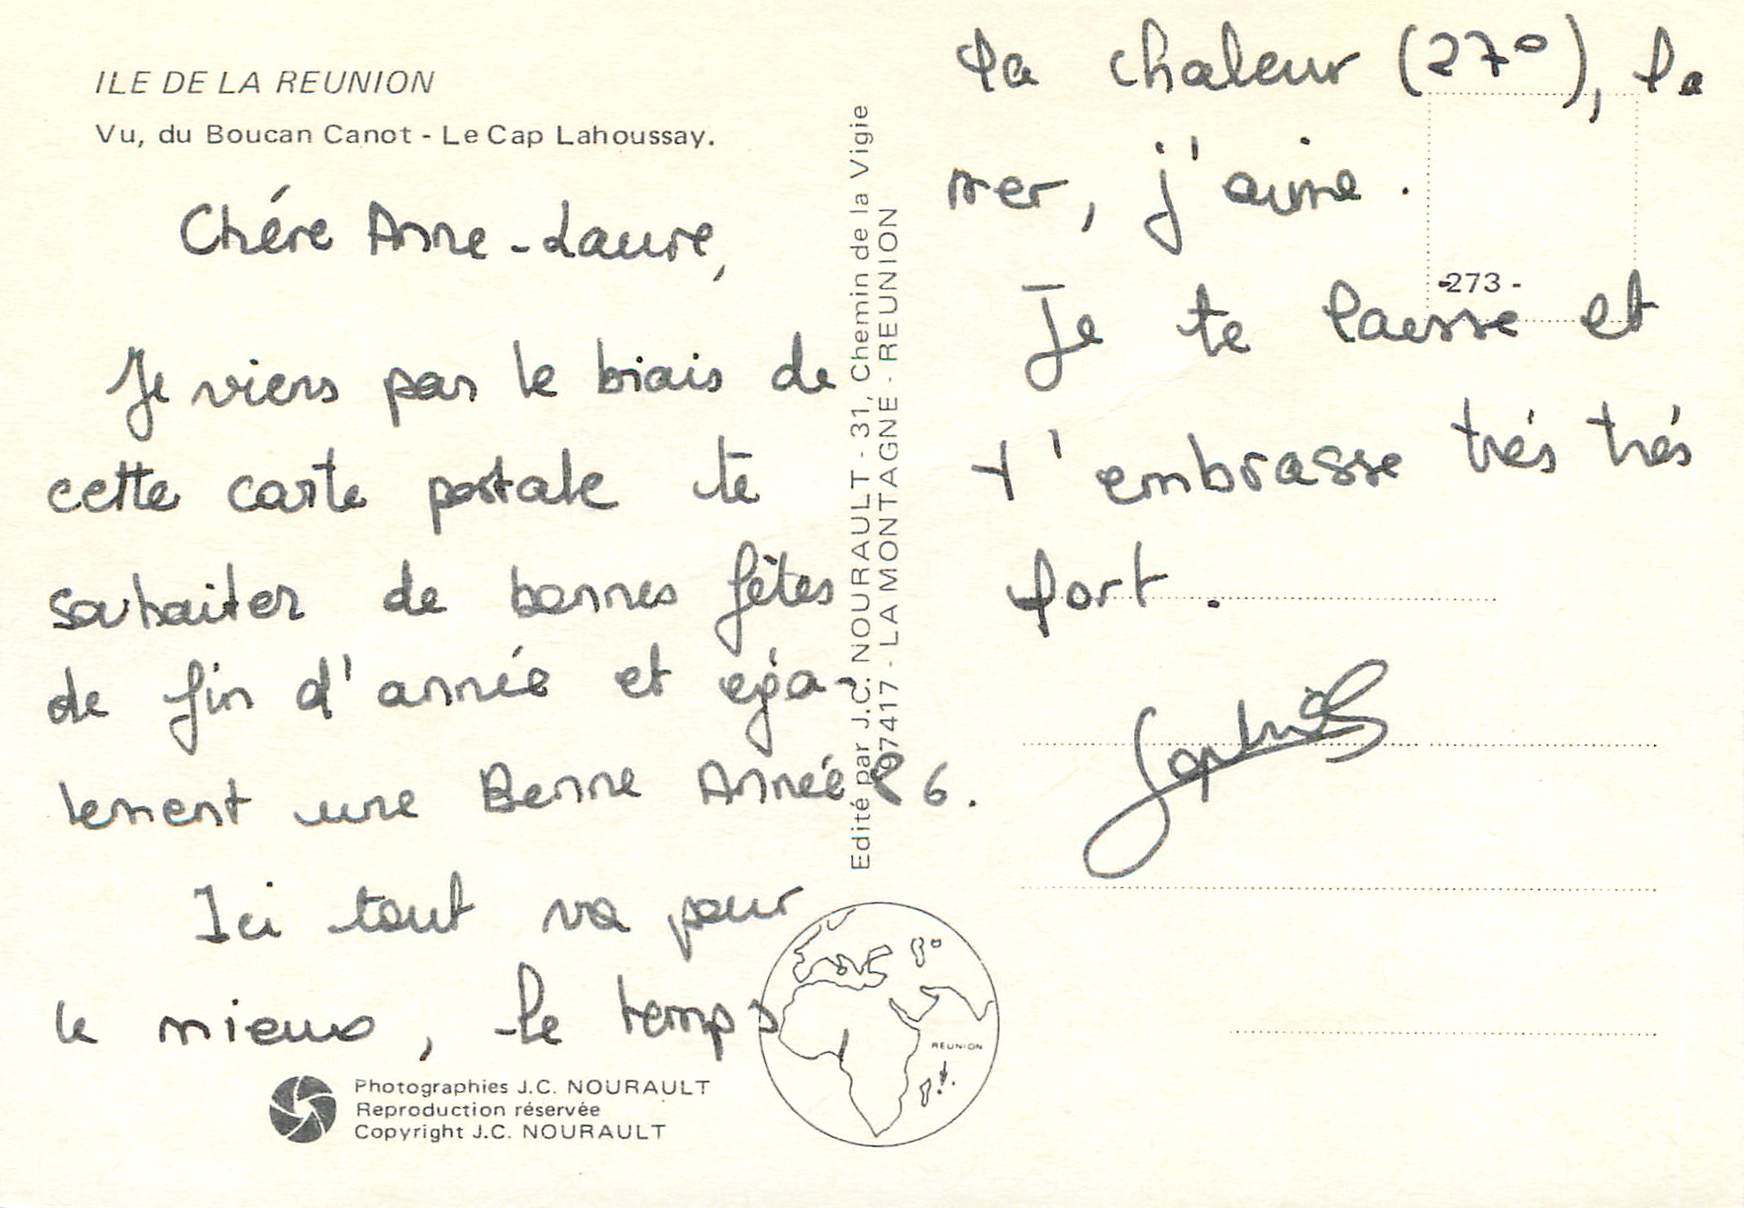 ILE DE LA REUNION
Vu, du Boucan Canot - Le Cap Lahoussay.
Chére Anne-Laure,
Je viens par le biais de
cette carte postale te
souhaiter de bonnes fêtes
de fin d'année et éga-
lement une Bonne Année 86.
Ici tout va pour
le mieux, le temps
la chaleur (27°), la
mer, j'aime.
Je te laisse et
t'embrasse trés trés
fort.
Sophie
-273-
Edité par J.C. NOURAULT - 31, Chemin de la Vigie
97417 - LA MONTAGNE - REUNION
REUNION
Photographies J.C. NOURAULT
Reproduction réservée
Copyright J.C. NOURAULT